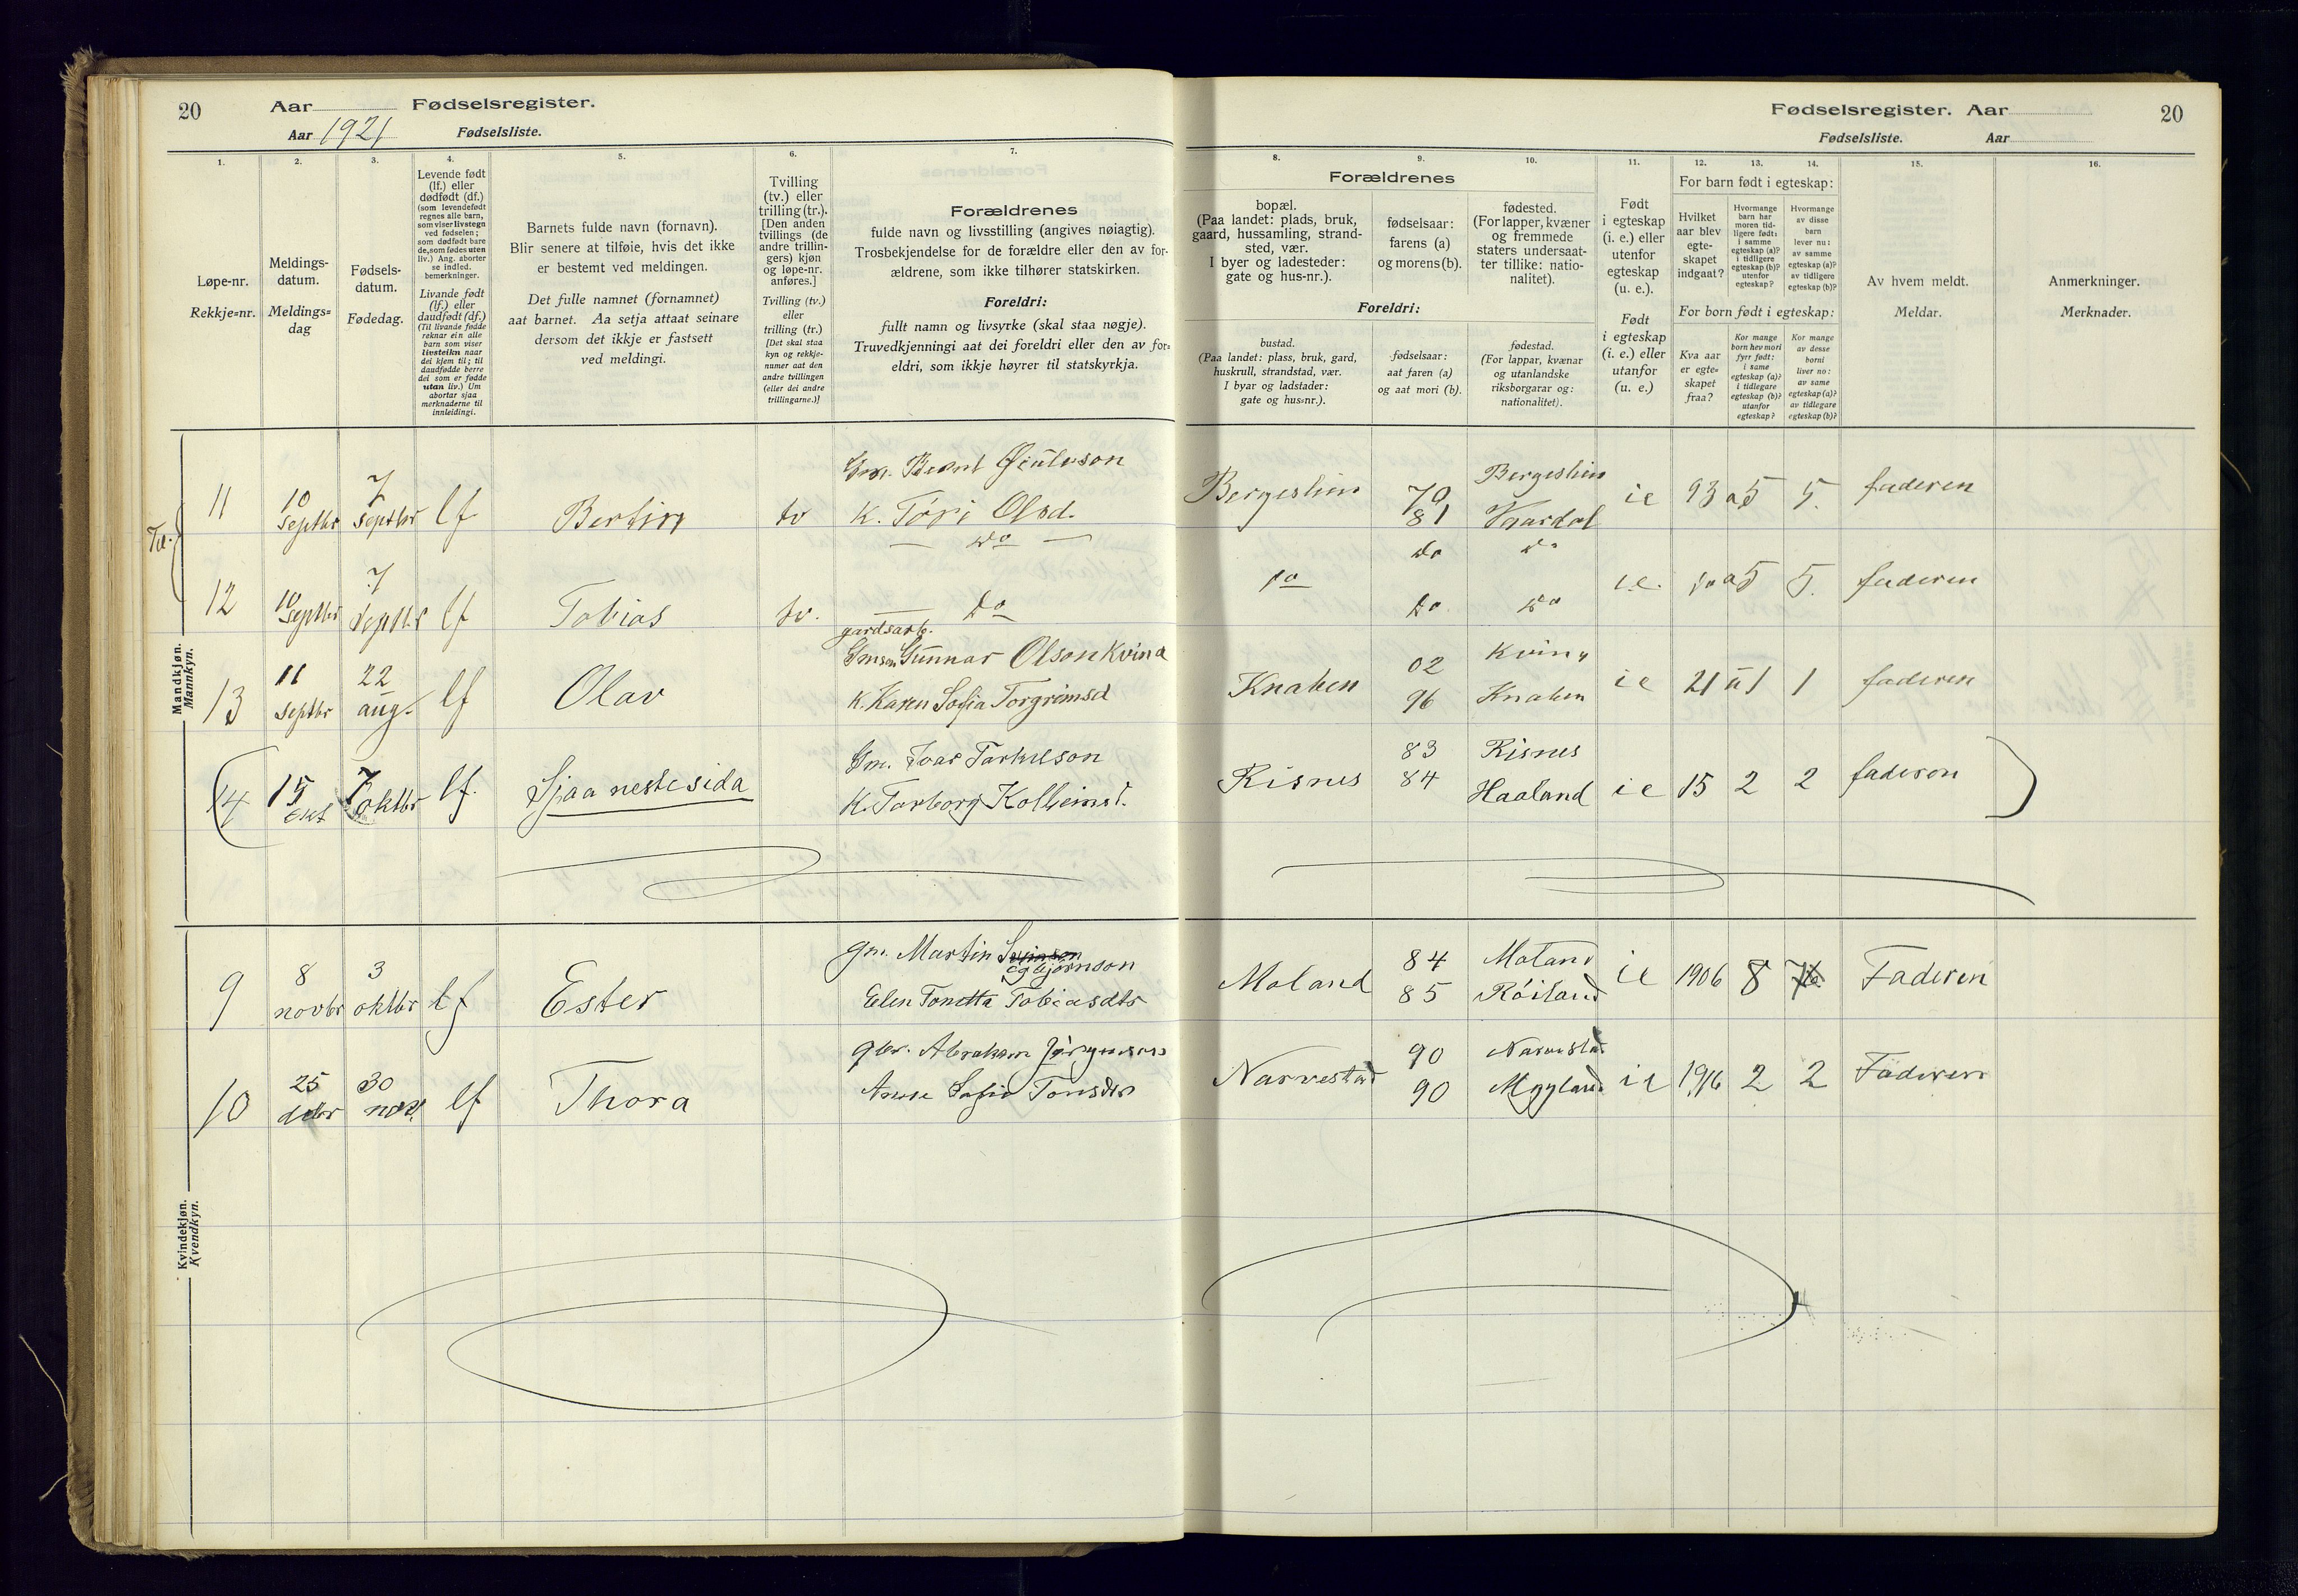 20
Aar
Fødselsregister.
Aar 1921
Fødselsliste.
Fødselsregister. Aar
20
Fødselsliste.
Aar
1.
Løpe-nr.
Rekkje=nr.
2.
Meldings-
datum.
Meldings=
dag
3.
Fødsels-
datum.
Fødedag.
4.
Levende født
(lf.) eller
dødfødt (df.)
(som levendefødt
regnes alle barn,
som viser livstegn
ved fødselen;
som dødfødt bare
de, som fødes uten
liv.) Ang. aborter
se indled.
bemerkninger.
Livande født
(lf.) eller
daudfødt (df.)
(Til livande fødde
reknar ein alle
barn som viser
livsteikn naar
dei kjem til; til
daudfødde berre
dei som er fødde
utan liv.) Um
abortar sjaa
merknaderne til
innleidingi.
5.
Barnets fulde navn (fornavn).
Blir senere at tilføie, hvis det ikke
er bestemt ved meldingen.
Det fulle namnet (fornamnet)
aat barnet. Aa setja attaat seinare
dersom det ikkje er fastsett
ved meldingi.
6.
Tvilling
(tv.) eller
trilling (tr.).
[Den anden
tvillings (de
andre trillin-
gers) kjøn
og løpe-nr.
anføres.]
Tvilling (tv.)
eller
trilling (tr.)
[Det skal staa
kyn og rekkje-
numer aat den
andre tvillingen
(eller dei andre
trillingarne.)]
7.
Forældrenes
fulde navn og livsstilling (angives nøiagtig).
Trosbekjendelse for de forældre eller den av for-
ældrene, som ikke tilhører statskirken.
Foreldri:
fullt namn og livsyrke (skal staa nøgje).
Truvedkjenningi aat dei foreldri eller den av for=
eldri, som ikkje høyrer til statskyrkja.
Forældrenes
8.
bopæl.
(Paa landet: plads, bruk,
gaard, hussamling, strand-
sted, vær.
I byer og ladesteder:
gate og hus-nr.).
9.
fødselsaar:
farens (a)
og morens (b).
10.
fødested.
(For lapper, kvæner
og fremmede
staters undersaat-
ter tillike: natio-
nalitet).
Foreldri:
bustad.
(Paa landet: plass, bruk, gard,
huskrull, strandstad, vær.
I byar og ladstader:
gate og hus=nr.).
fødselsaar:
aat faren (a)
og aat mori (b).
fødestad.
(For lappar, kvænar
og utanlandske
riksborgarar og:
nationalitet).
11.
Født
i egteskap
(i. e.) eller
utenfor
egteskap
(u. e.).
Født
i egteskap
(i. e.) eller
utanfor
(u. e.)
12.
13.
14.
For barn født i egteskap:
Hvilket
aar blev
egte-
skapet
indgaat?
Hvormange
barn har
moren tid-
ligere født:
i samme
egteskap (a)?
i tidligere
egteskap (b)?
utenfor
egteskap?
Hvormange
av disse
barn
lever nu:
av samme
egteskap (a)?
av tidligere
egteskap (b)?
For born født i egteskap:
Kva aar
er egte=
skapet
fraa?
Kor mange
born hev mori
fyrr født:
i same
egteskap (a)?
i tidlegare
egteskap (b)?
utanfor
egteskap?
Kor mange
av desse
borni
liver no:
av same
egteskap (a)?
av tidlegare
egteskap (b)?
15.
Av hvem meldt.
Meldar.
16.
Anmerkninger.
Merknader.
Mandkjøn.
Mannkyn.
11
10 septbr
7 septbr
lf
Bertin
tv
K. Tøri Olsd.
Bergeslien
81
Bergeslien
ie
93 a5
5.
faderen
12
10 septbr
7 septbr
lf
Tobias
tv.
do
do
do
do
i.e.
a5
5.
faderen
13
11 septbr
22 aug.
lf
Olav
gardsarb.
Gmsøn Gunnar Olson Kvina
K. Karen Sofia Torgrimsd
Knaben
02
96
Kvina
Knaben
ie
21
1
faderen
14
15 okt
7 oktbr
lf.
Sjaa neste sida
Gm. Ivar Tarkelson
K. Torborg Kolbeinsd.
Risnes
83
84
Risnes
Haaland
ie
15
2
2
faderen
Kvindekjøn.
Kvendkyn.
9
8 novbr
3 oktbr
lf
Ester
gm. Martin
Egbjørnson
Elen Tonetta Tobiasdtr
Moland
84
85
Moland
Røiland
ie
1906
8
Faderen
10
25 debr
30 nov.
lf
Thora
gbr. Abraham Jörgensen
Anne Sofie Tønsdtr
Narvestad
90
90
Narvestad
Mygland
ie
1916
2
2
Faderen